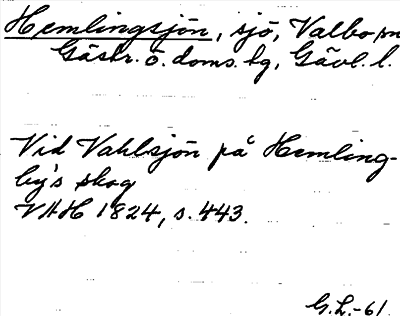 Hemlingsjön, sjö, Valbo sn
Gästr. ö. doms.hg, Gävl. l.
Vid Vahlsjön på Hemling-
by's skog
VAH 1824, s. 443.
G.L.-61